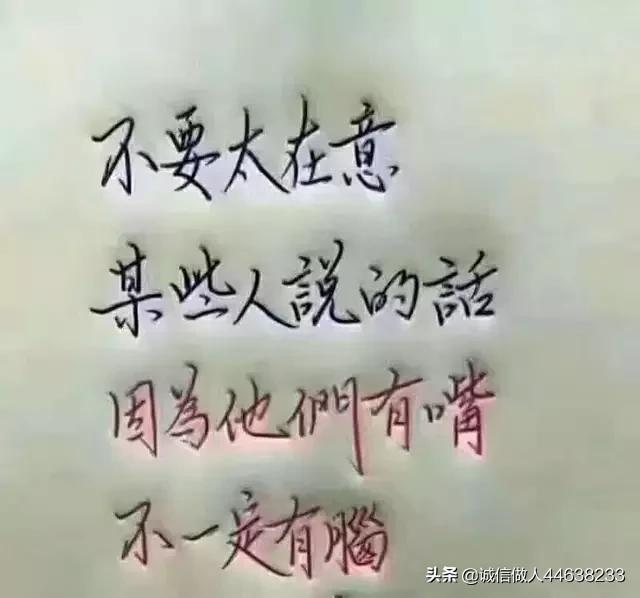 不要太在意
某些人説的話
因為他們有嘴
不一定有腦
头条 @诚信做人44638233